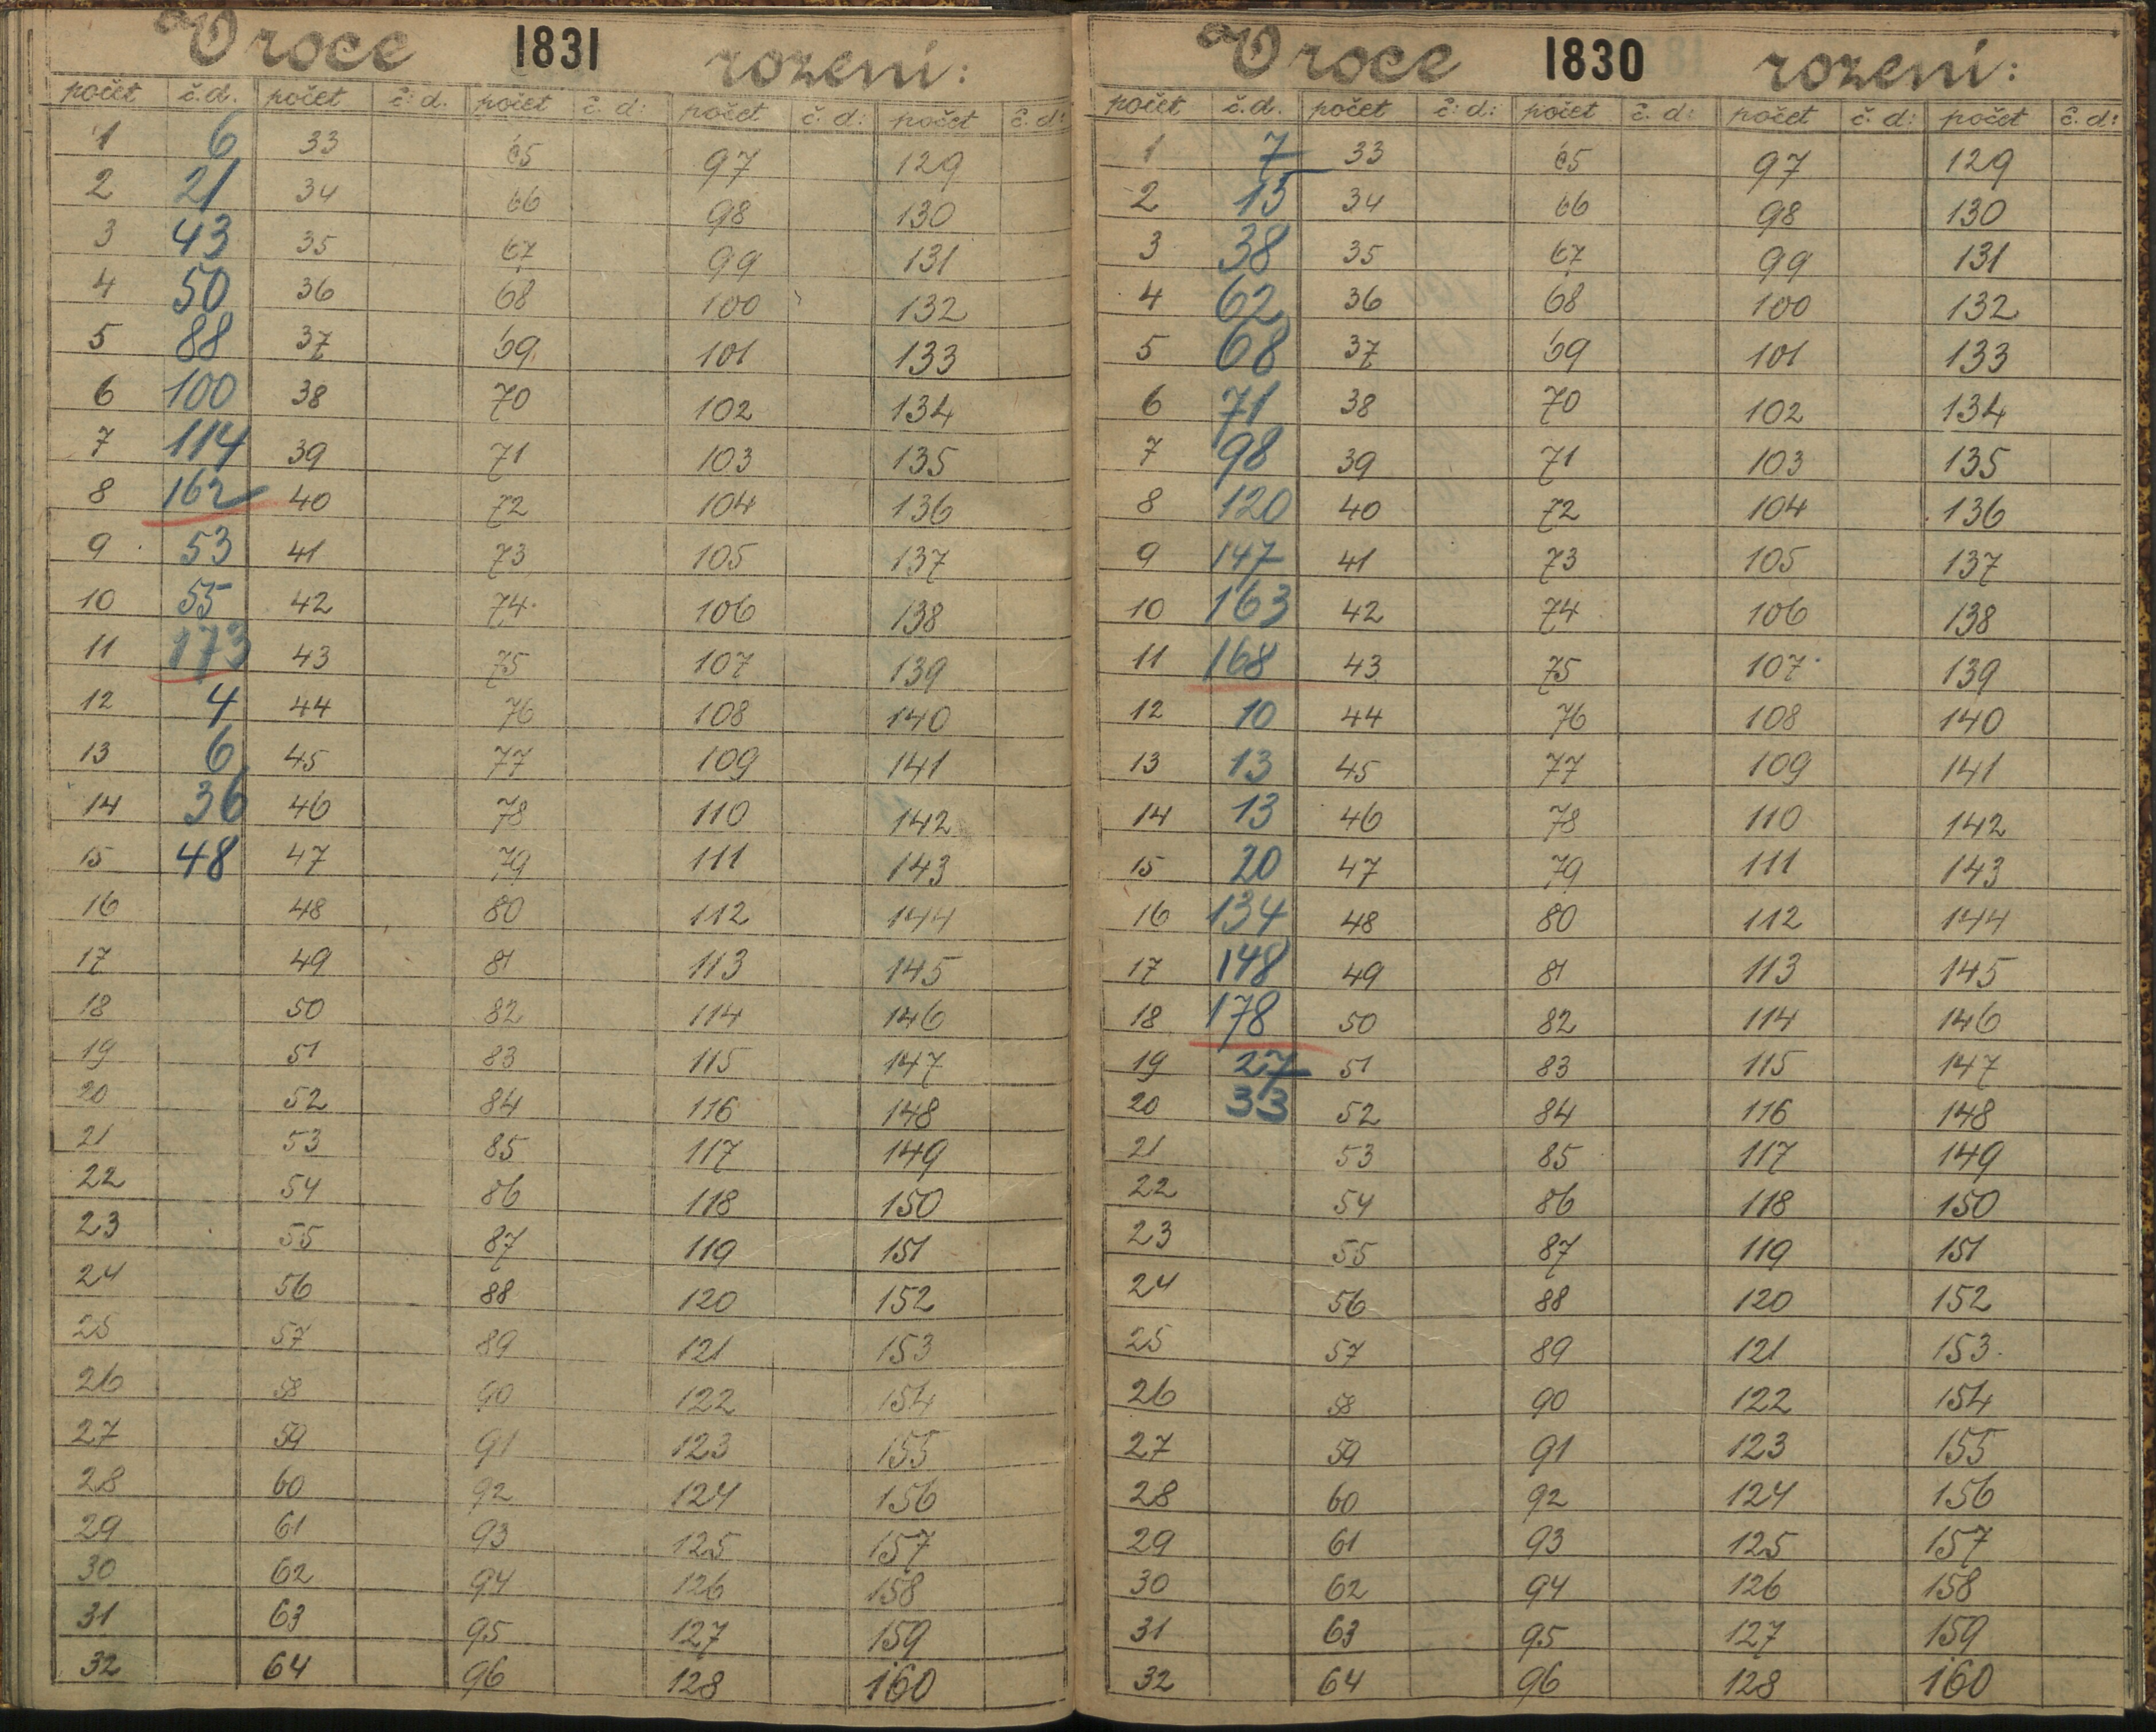 V roce 1831 rození:
počet č.d. počet č: d. počet č. d: počet č: d: počet č. d:
1 6 33 65 97 129
2 21 34 66 98 130
3 43 35 67 99 131
4 50 36 68 100 132
5 88 37 69 101 133
6 100 38 70 102 134
7 114 39 71 103 135
8 162 40 72 104 136
9 53 41 73 105 137
10 55 42 74 106 138
11 173 43 75 107 139
12 4 44 76 108 140
13 6 45 77 109 141
14 36 46 78 110 142
15 48 47 79 111 143
16 48 80 112 144
17 49 81 113 145
18 50 82 114 146
19 51 83 115 147
20 52 84 116 148
21 53 85 117 149
22 54 86 118 150
23 55 87 119 151
24 56 88 120 152
25 57 89 121 153
26 58 90 122 154
27 59 91 123 155
28 60 92 124 156
29 61 93 125 157
30 62 94 126 158
31 63 95 127 159
32 64 96 128 160
V roce 1830 rození:
počet č.d. počet č: d: počet č. d: počet č: d: počet č. d:
1 7 33 65 97 129
2 15 34 66 98 130
3 38 35 67 99 131
4 62 36 68 100 132
5 68 37 69 101 133
6 71 38 70 102 134
7 98 39 71 103 135
8 120 40 72 104 136
9 147 41 73 105 137
10 163 42 74 106 138
11 168 43 75 107 139
12 10 44 76 108 140
13 13 45 77 109 141
14 13 46 78 110 142
15 20 47 79 111 143
16 134 48 80 112 144
17 148 49 81 113 145
18 178 50 82 114 146
19 27 51 83 115 147
20 33 52 84 116 148
21 53 85 117 149
22 54 86 118 150
23 55 87 119 151
24 56 88 120 152
25 57 89 121 153
26 58 90 122 154
27 59 91 123 155
28 60 92 124 156
29 61 93 125 157
30 62 94 126 158
31 63 95 127 159
32 64 96 128 160